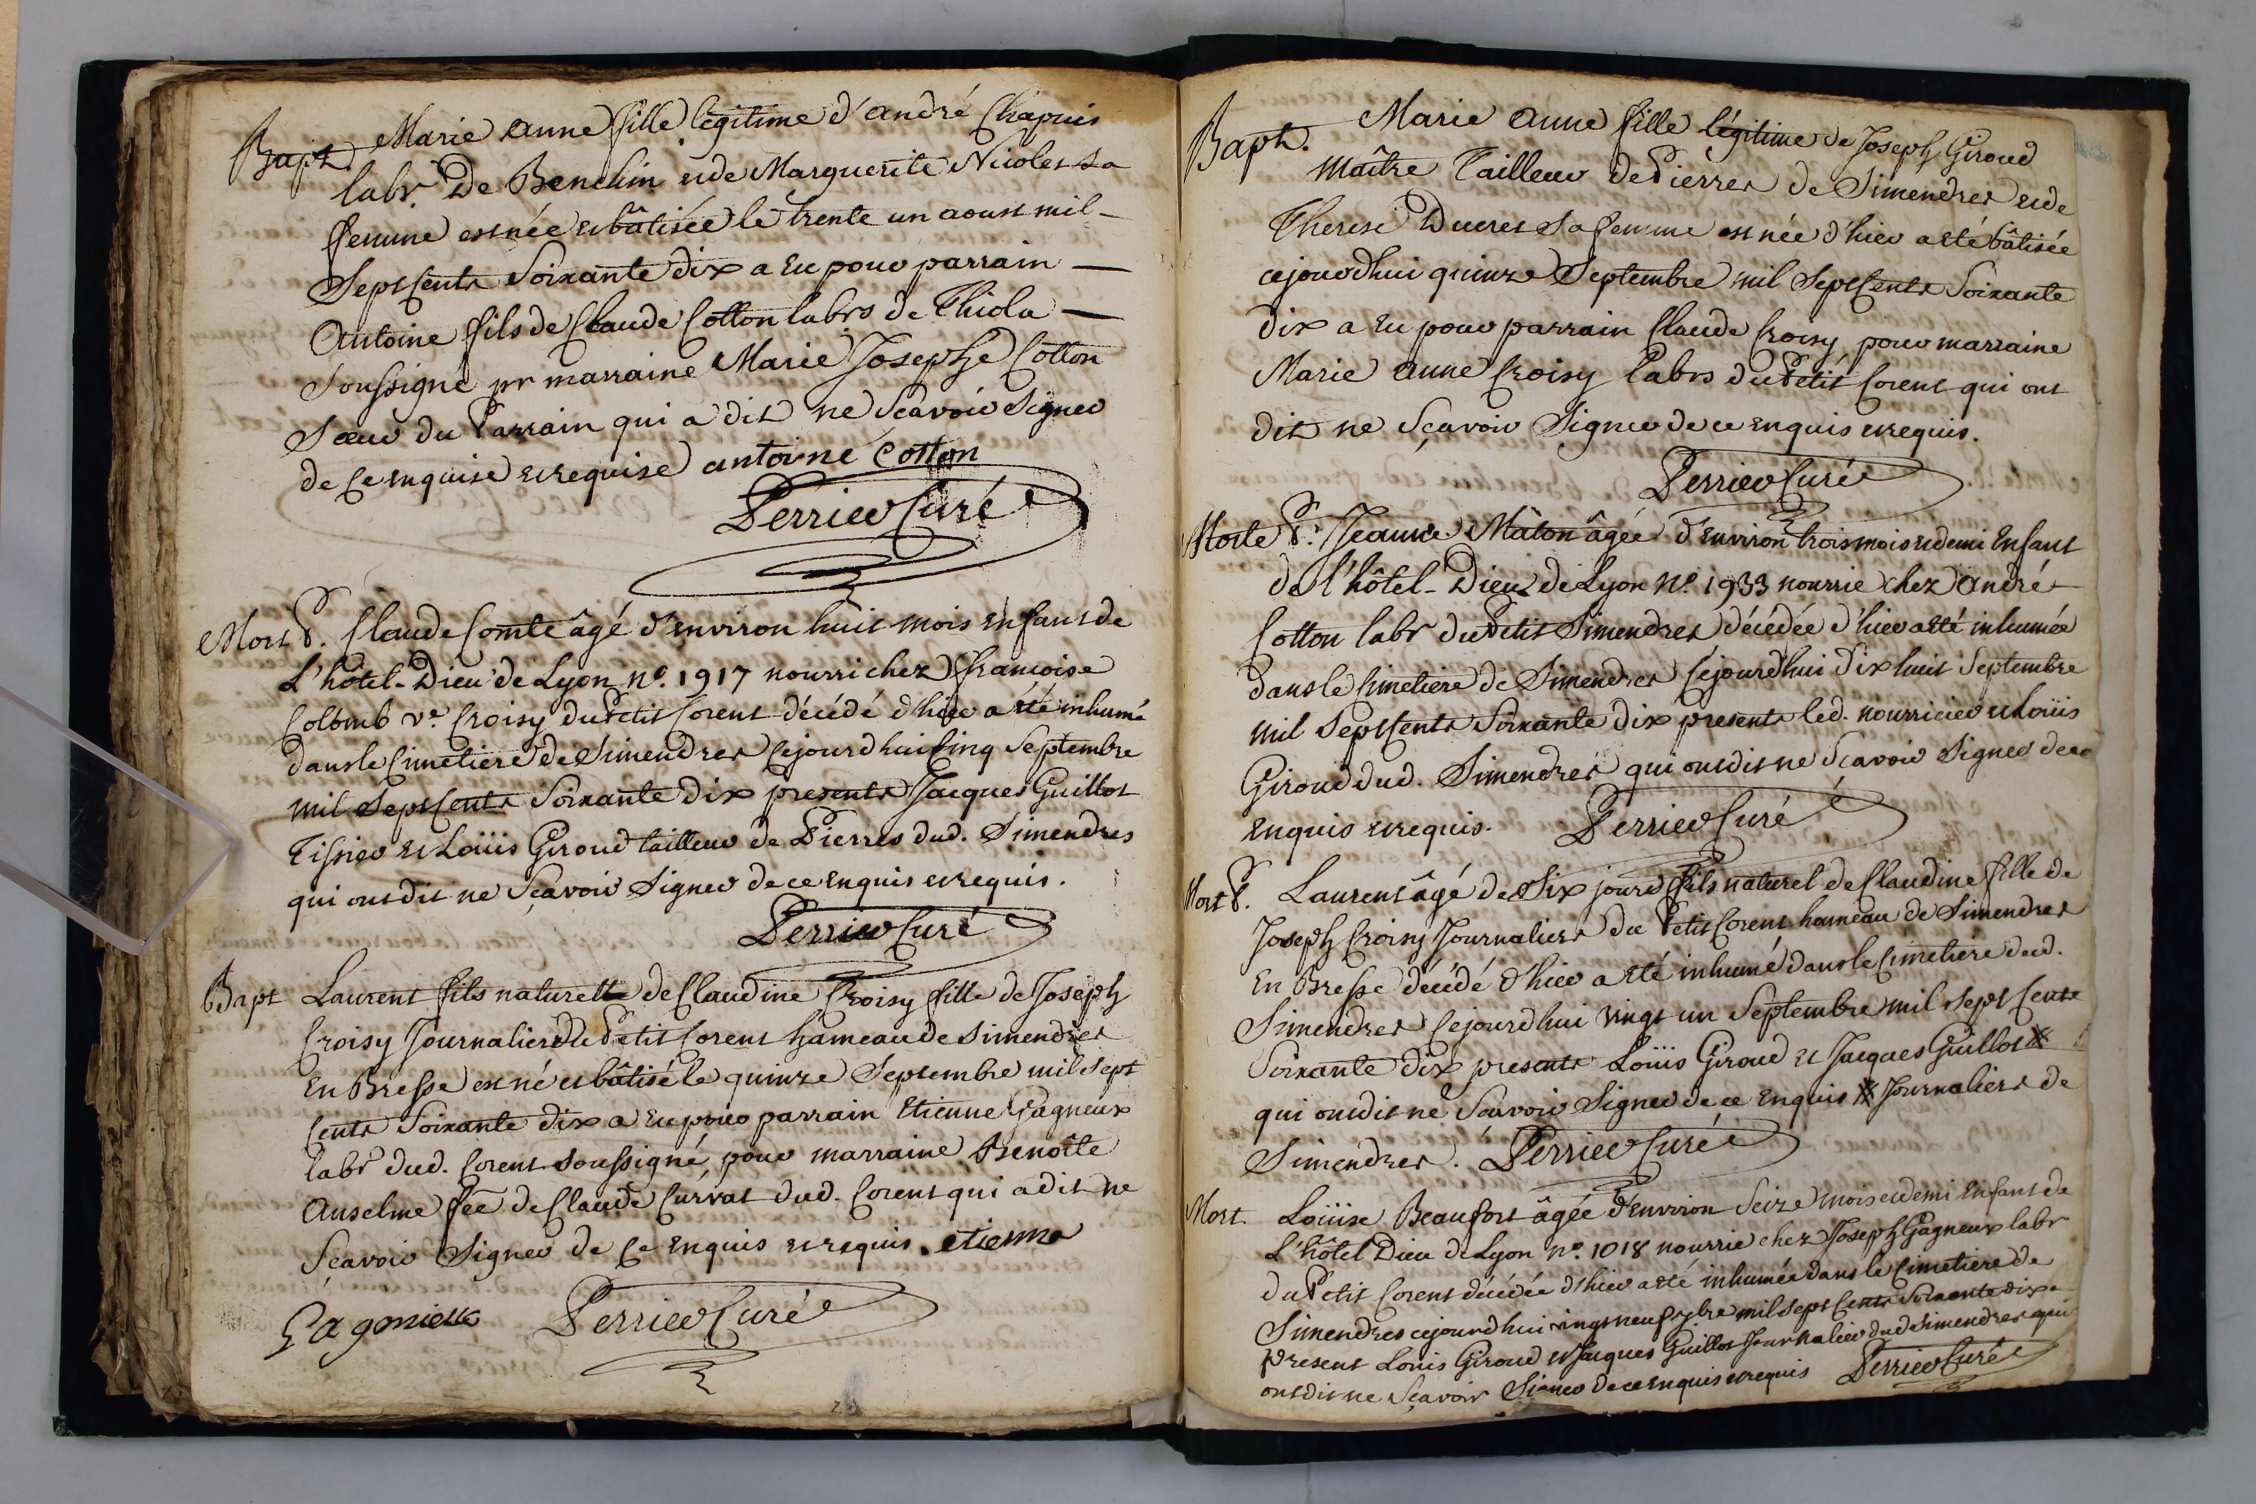 Bapt. Marie anne fille légitime d'andré Chapuis
labr. De Benchin et de Marguerite Nicolet sa
femme est née et bâtisée le trente un aoust mil
Sept Cents Soixante dix a eu pour parrain
Antoine fils de Claude Cotton labrs de Thiola
Soussigné pr marraine Marie Josephe Cotton
Soeur du Parrain qui a dit ne Scavoir Signer
de Ce enquise et requise antoine Cotton
Perrier Curé
Mort P. Claude Comte âgé d'environ huit mois enfant de
L'hôtel-Dieu de Lyon n°. 1917 nourri chez francoise
Colomb ve. Croisy du Petit Corent décédé d'hier a été inhumé
dans le Cimetiere de Simendres Cejourdhui Cinq Septembre
mil Sept Cents Soixante dix presents Jacques Guillot
Tissier et Loüis Giroud tailleur de Pierres dud. Simendres
qui ont dit ne Sçavoir Signer de ce enquis et requis.
Perrier Curé
Bapt Laurent fils naturelle de Claudine Croisy fille de Joseph
Croisy Journalier du Petit Corent hameau de Simendres
En Bresse est né et bâtisé le quinze Septembre mil Sept
Cents Soixante dix a eu pour parrain Etienne Gagneux
labr dud. Corent Soussigné, pour marraine Benoîte
Anselme fée de Claude Curvat dud. Corent qui a dit ne
Sçavoir Signer de Ce enquis et requis. etienne
Perrier Curé
Bapt. Marie Anne fille légitime de Joseph Giroud
Maître Tailleur de Pierres de Simendres et de
Therese Ducret Sa femme est née d'hier a été bâtisée
cejourdhui quinze Septembre mil Sept Cents Soixante
dix a eu pour parrain Claude Croisy pour marraine
Marie Anne Croisy labrs du Petit Corent qui ont
dit ne Sçavoir Signer de ce enquis et requis.
Perrier Curé
Morte P. Jeanne Mâton âgée d'environ trois mois et demi Enfant
de l'hôtel-Dieu de Lyon N°. 1933 nourrie chez André
Cotton labr du Petit Simendres décédée d'hier a été inhumée
dans le Cimetiere de Simendres Cejourdhui dix huit Septembre
mil Sept Cents Soixante dix presents led. nourricier et Loüis
Giroud dud. Simendres qui ont dit ne Scavoir Signer de ce
enquis et requis. Perrier Curé
Mort P. Laurent âgé de Six jours fils naturel de Claudine fille de
Joseph Croisy Journaliers du Petit Corent hameau de Simendres
En Bresse décédé d'hier a été inhumé dans le Cimetiere dud.
Simendres Cejourdhui vingt un Septembre mil Sept Cents
Soixante dix presents Loüis Giroud et Jacques Guillot
qui ont dit ne Scavoir Signer de ce enquis Journaliers de
Simendres. Perrier Curé
Mort. Loüise Beaufort âgée d'environ Seize mois et demi Enfant de
L'hôtel Dieu de Lyon n°. 1018 nourrie chez Joseph Gagneux labr
du Petit Corent décédée d'hier a été inhumée dans le Cimetiere de
Simendres cejourdhui vingt neuf 7bre mil Sept Cents Soixante dix
Present Louis Giroud et Jacques Guillot Journalier dud Simendres qui
ont dit ne Sçavoir Signer de ce enquis et requis Perrier Curé